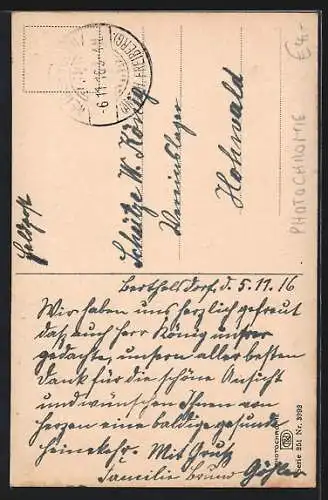 Feldpost
Schütze W. König
Vereinslager
Hohwald
-6.11.16.
FREIBERG)
PHOTOCHROMIE
€ 4.-
Berthelsdorf, d. 5.11.16
Wir haben uns herzlich gefreut
daß auch Herr König unsrer
gedachte, unsern aller besten
Dank für die schöne Ansicht
und wünschen Ihnen von
Herzen eine baldige gesunde
Heimkehr. Mit Gruß
Familie Bruno
PHOTOCHROMIE
Serie 251 Nr. 3393